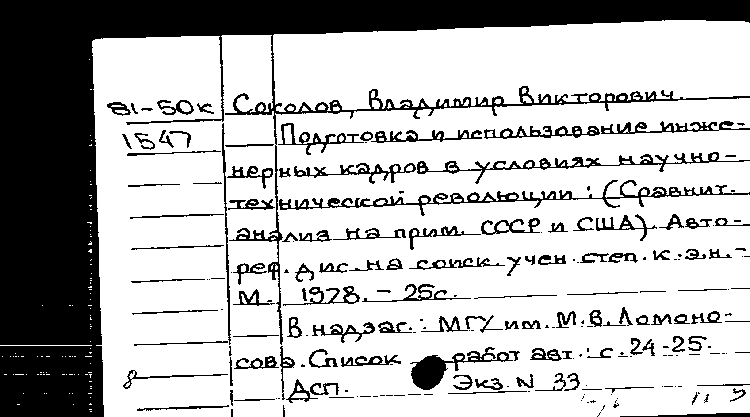 81-50к Соколов, Владимир Викторович.
1547 Подготовка и использование инже-
нерных кадров в условиях научно-
технической революции: (Сравнит.
анализ на прим. СССР и США). Авто-
реф. дис. на соиск. учен. степ. к.э.н. -
М. 1978. - 25с.
В надзаг.: МГУ им. М.В. Ломоно-
сова. Список работ авт.: с. 24-25.
8 Дсп. Экз. N 33